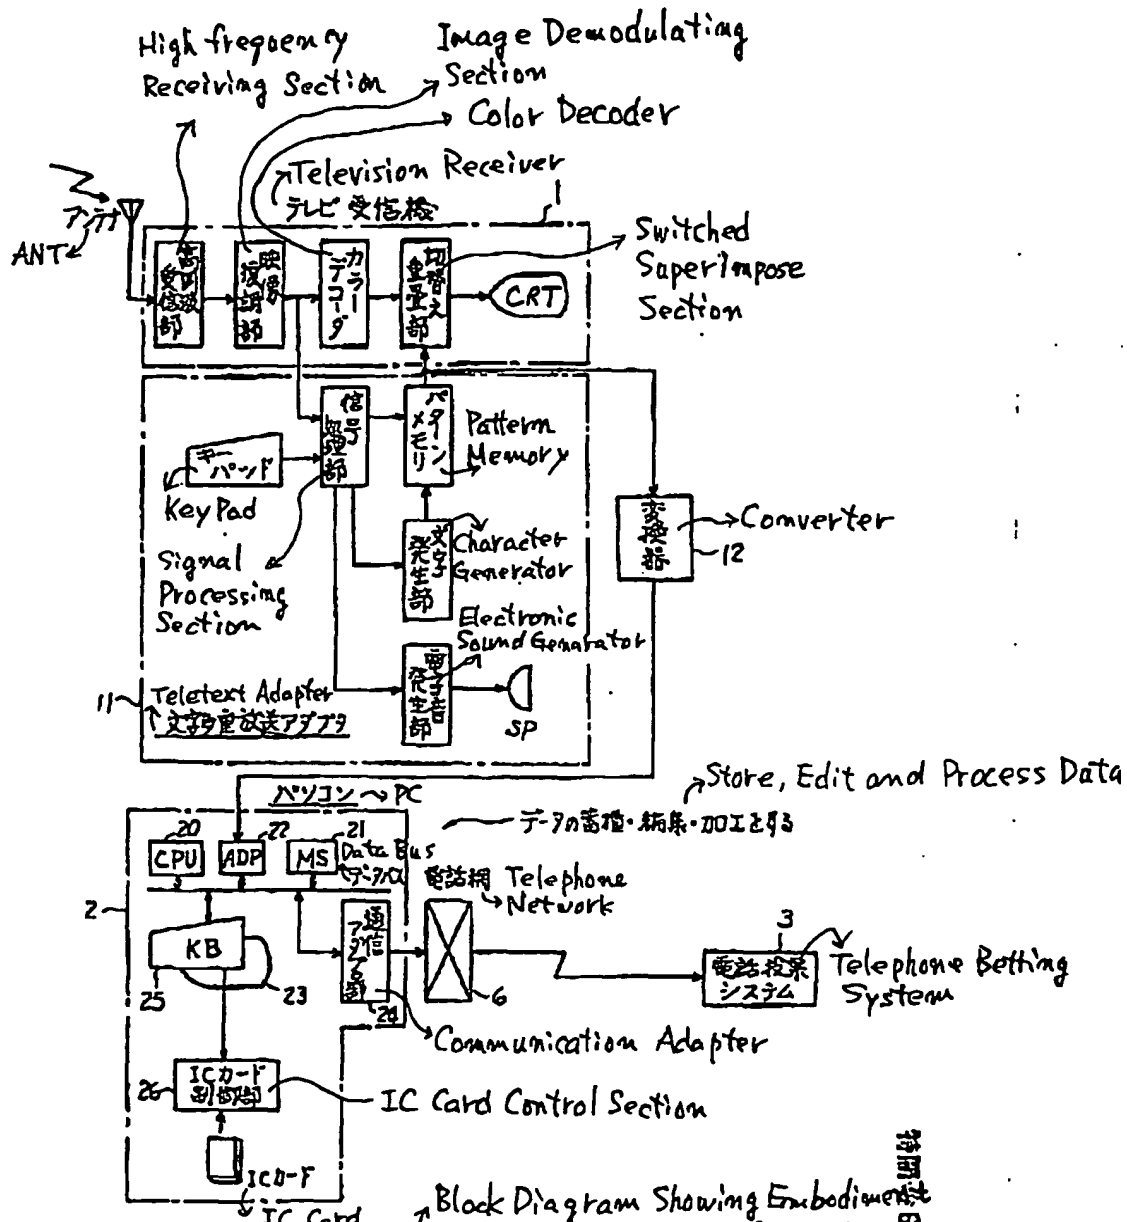 High frequency
Receiving Section
Image Demodulating
Section
Color Decoder
Television Receiver
テレビ受信機
1
アンテナ
ANT
Switched
Superimpose
Section
高周波
受信部
映像
復調部
カラー
デコーダ
切替え
重畳部
CRT
信号
処理部
パターン
メモリ
Pattern
Memory
キー
パッド
Key Pad
Signal
Processing
Section
文字
発生部
Character
Generator
変換器
Converter
12
Electronic
Sound Genarator
電子音
発生部
SP
11
Teletext Adapter
文字多重放送アダプタ
パソコン
PC
Store, Edit and Process Data
データの蓄積・編集・加工をする
20
22
21
CPU
ADP
MS
Data Bus
データバス
電話網
Telephone
Network
2
KB
25
23
通信
アダプタ部
24
6
3
電話投票
システム
Telephone Betting
System
Communication Adapter
26
ICカード
制御部
IC Card Control Section
ICカード
IC Card
Block Diagram Showing Embodiment